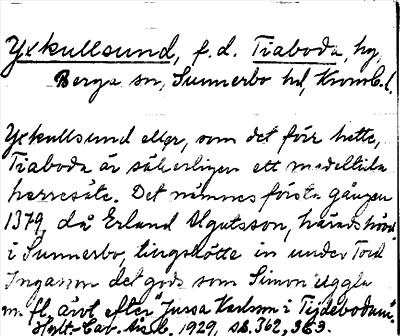 Yxkullsund, f.d. Tiaboda, hg,
Berga sn, Sunnerbo hd, Kronb.l.
Yxkullsund eller, som det förr hette,
Tiaboda är säkerligen ett medeltida
herresäte. Det nämnes första gången
1379, då Erland Ugutsson, häradshövd
i Sunnerbo, tingskötte in under Tord
Ingason det gods som Simon Uggla
m.fl. ärvt efter "Jussa Karlsson i Tijdebodum"
Hylt.-Cav. 1929, sd. 362, 363.